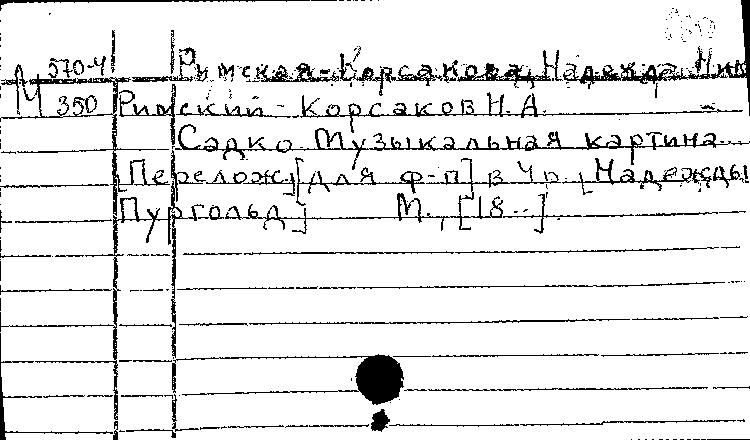 М 570-4 Римская-Корсакова, Надежда Ник
350 Римский-Корсаков Н. А.
Садко. Музыкальная картина...
[Перелож] [для ф-п] в 4 р. [Надежды
Пургольд] М., [18..]